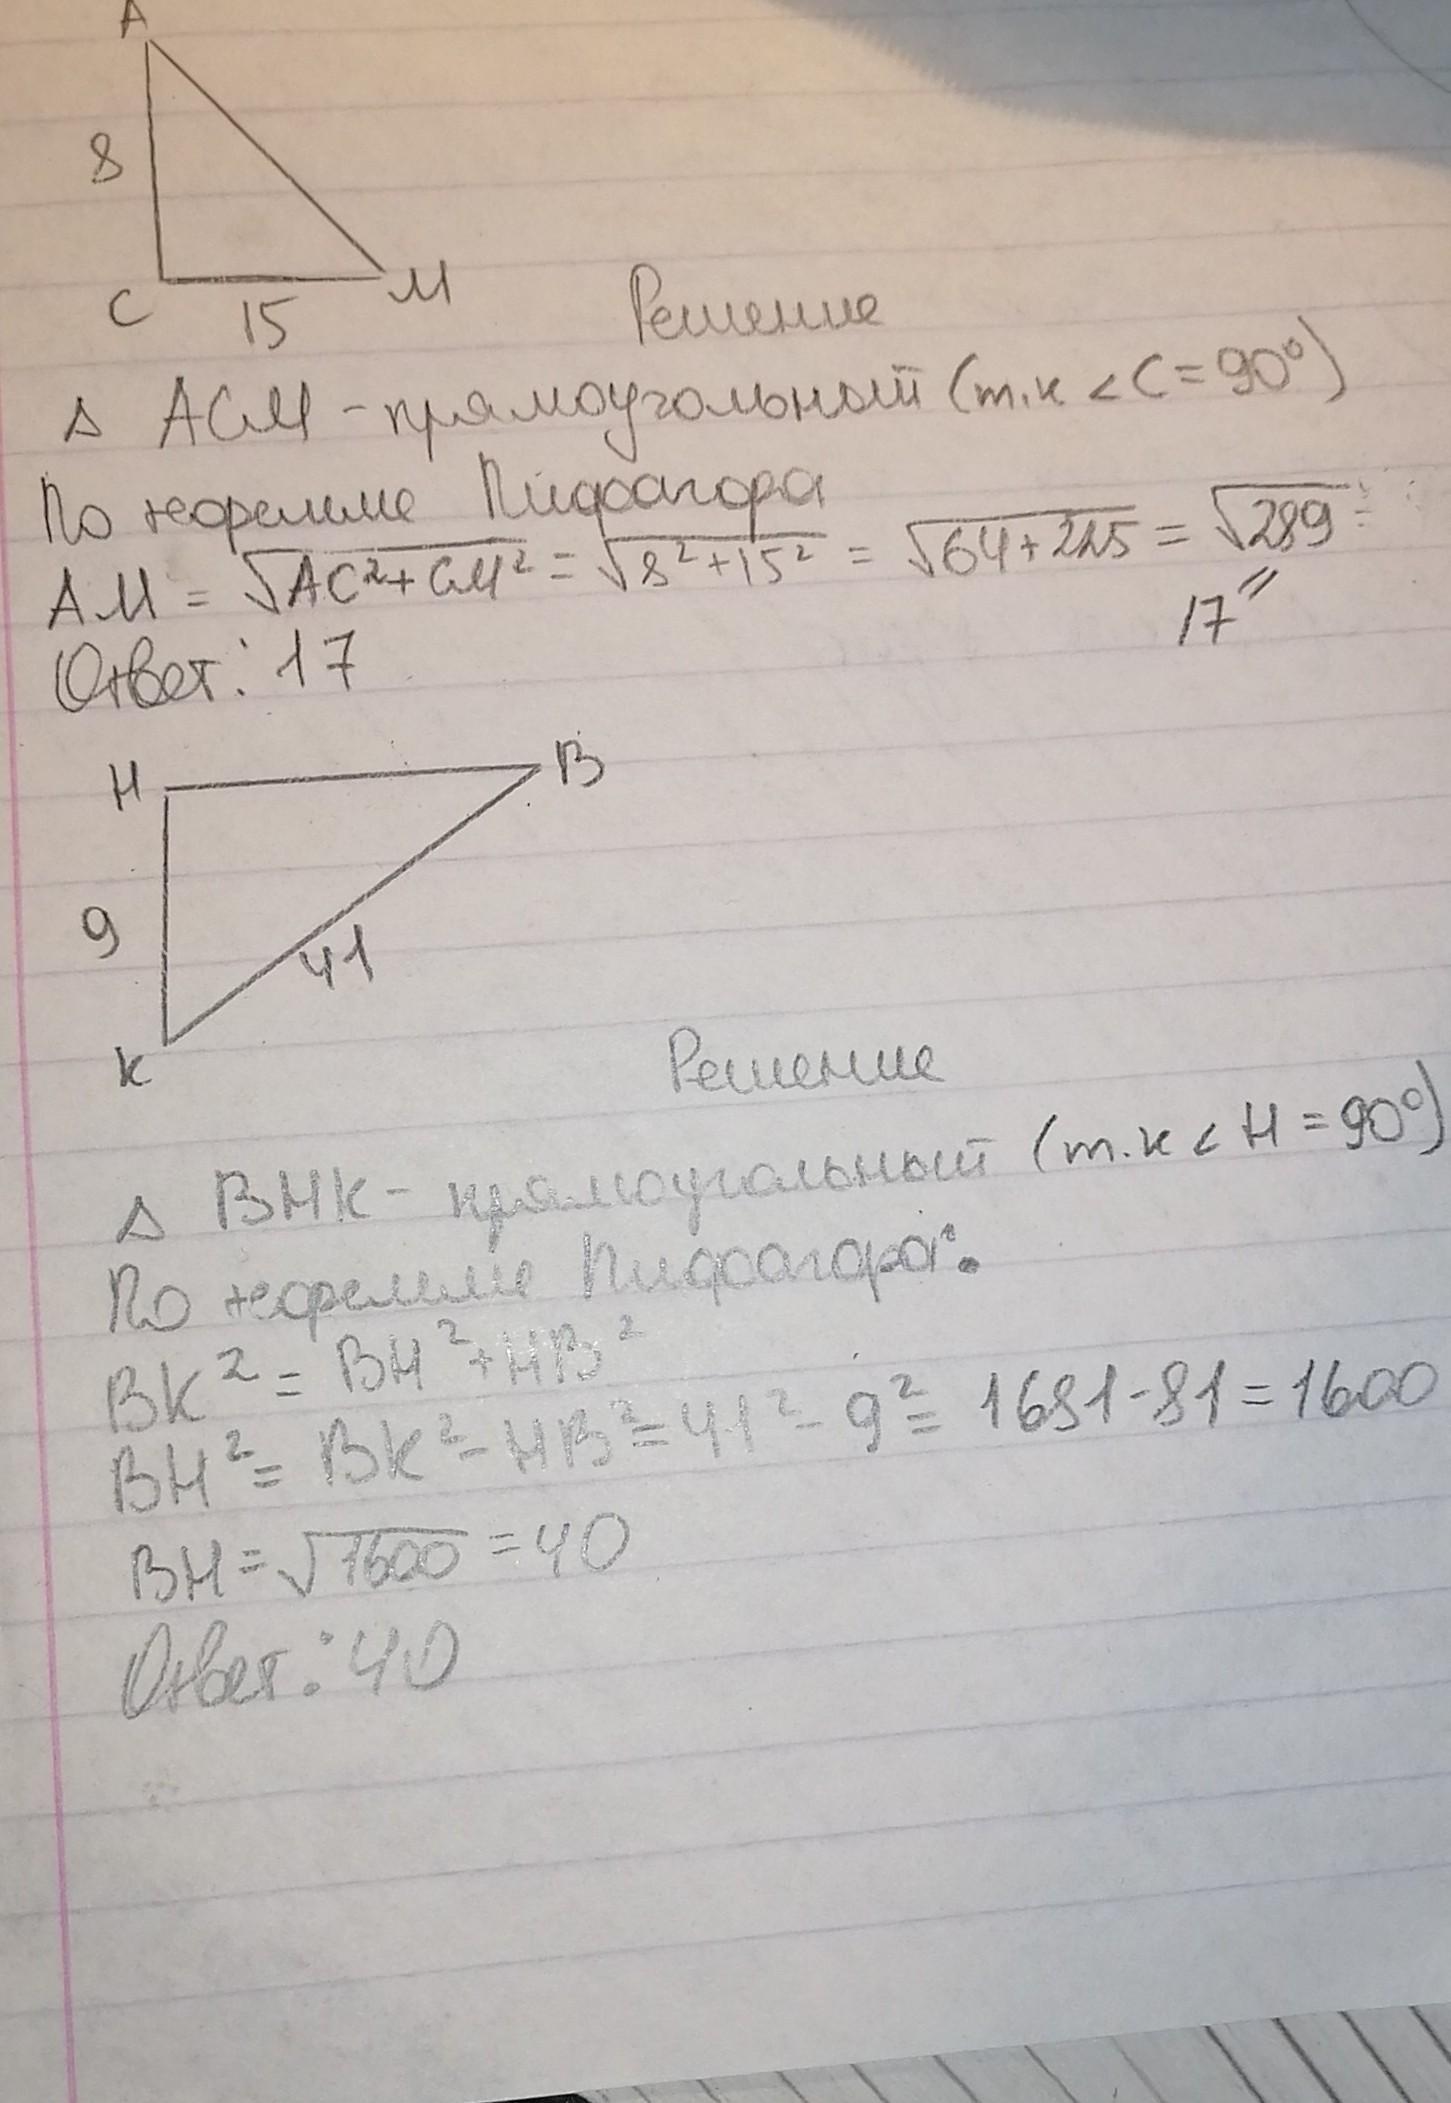 А
8
С
М
15
Решение
Δ АСМ - прямоугольный (т.к < С = 90°)
По теореме Пифагора
АМ = √АС²+СМ² = √8²+15² = √64+225 = √289 =
17
Ответ: 17
Н
В
9
41
К
Решение
Δ ВНК - прямоугольный (т.к < Н = 90°)
По теореме Пифагора:
ВК² = ВН²+НВ²
ВН² = ВК² - НВ² = 41² - 9² = 1681-81 = 1600
ВН = √1600 = 40
Ответ: 40